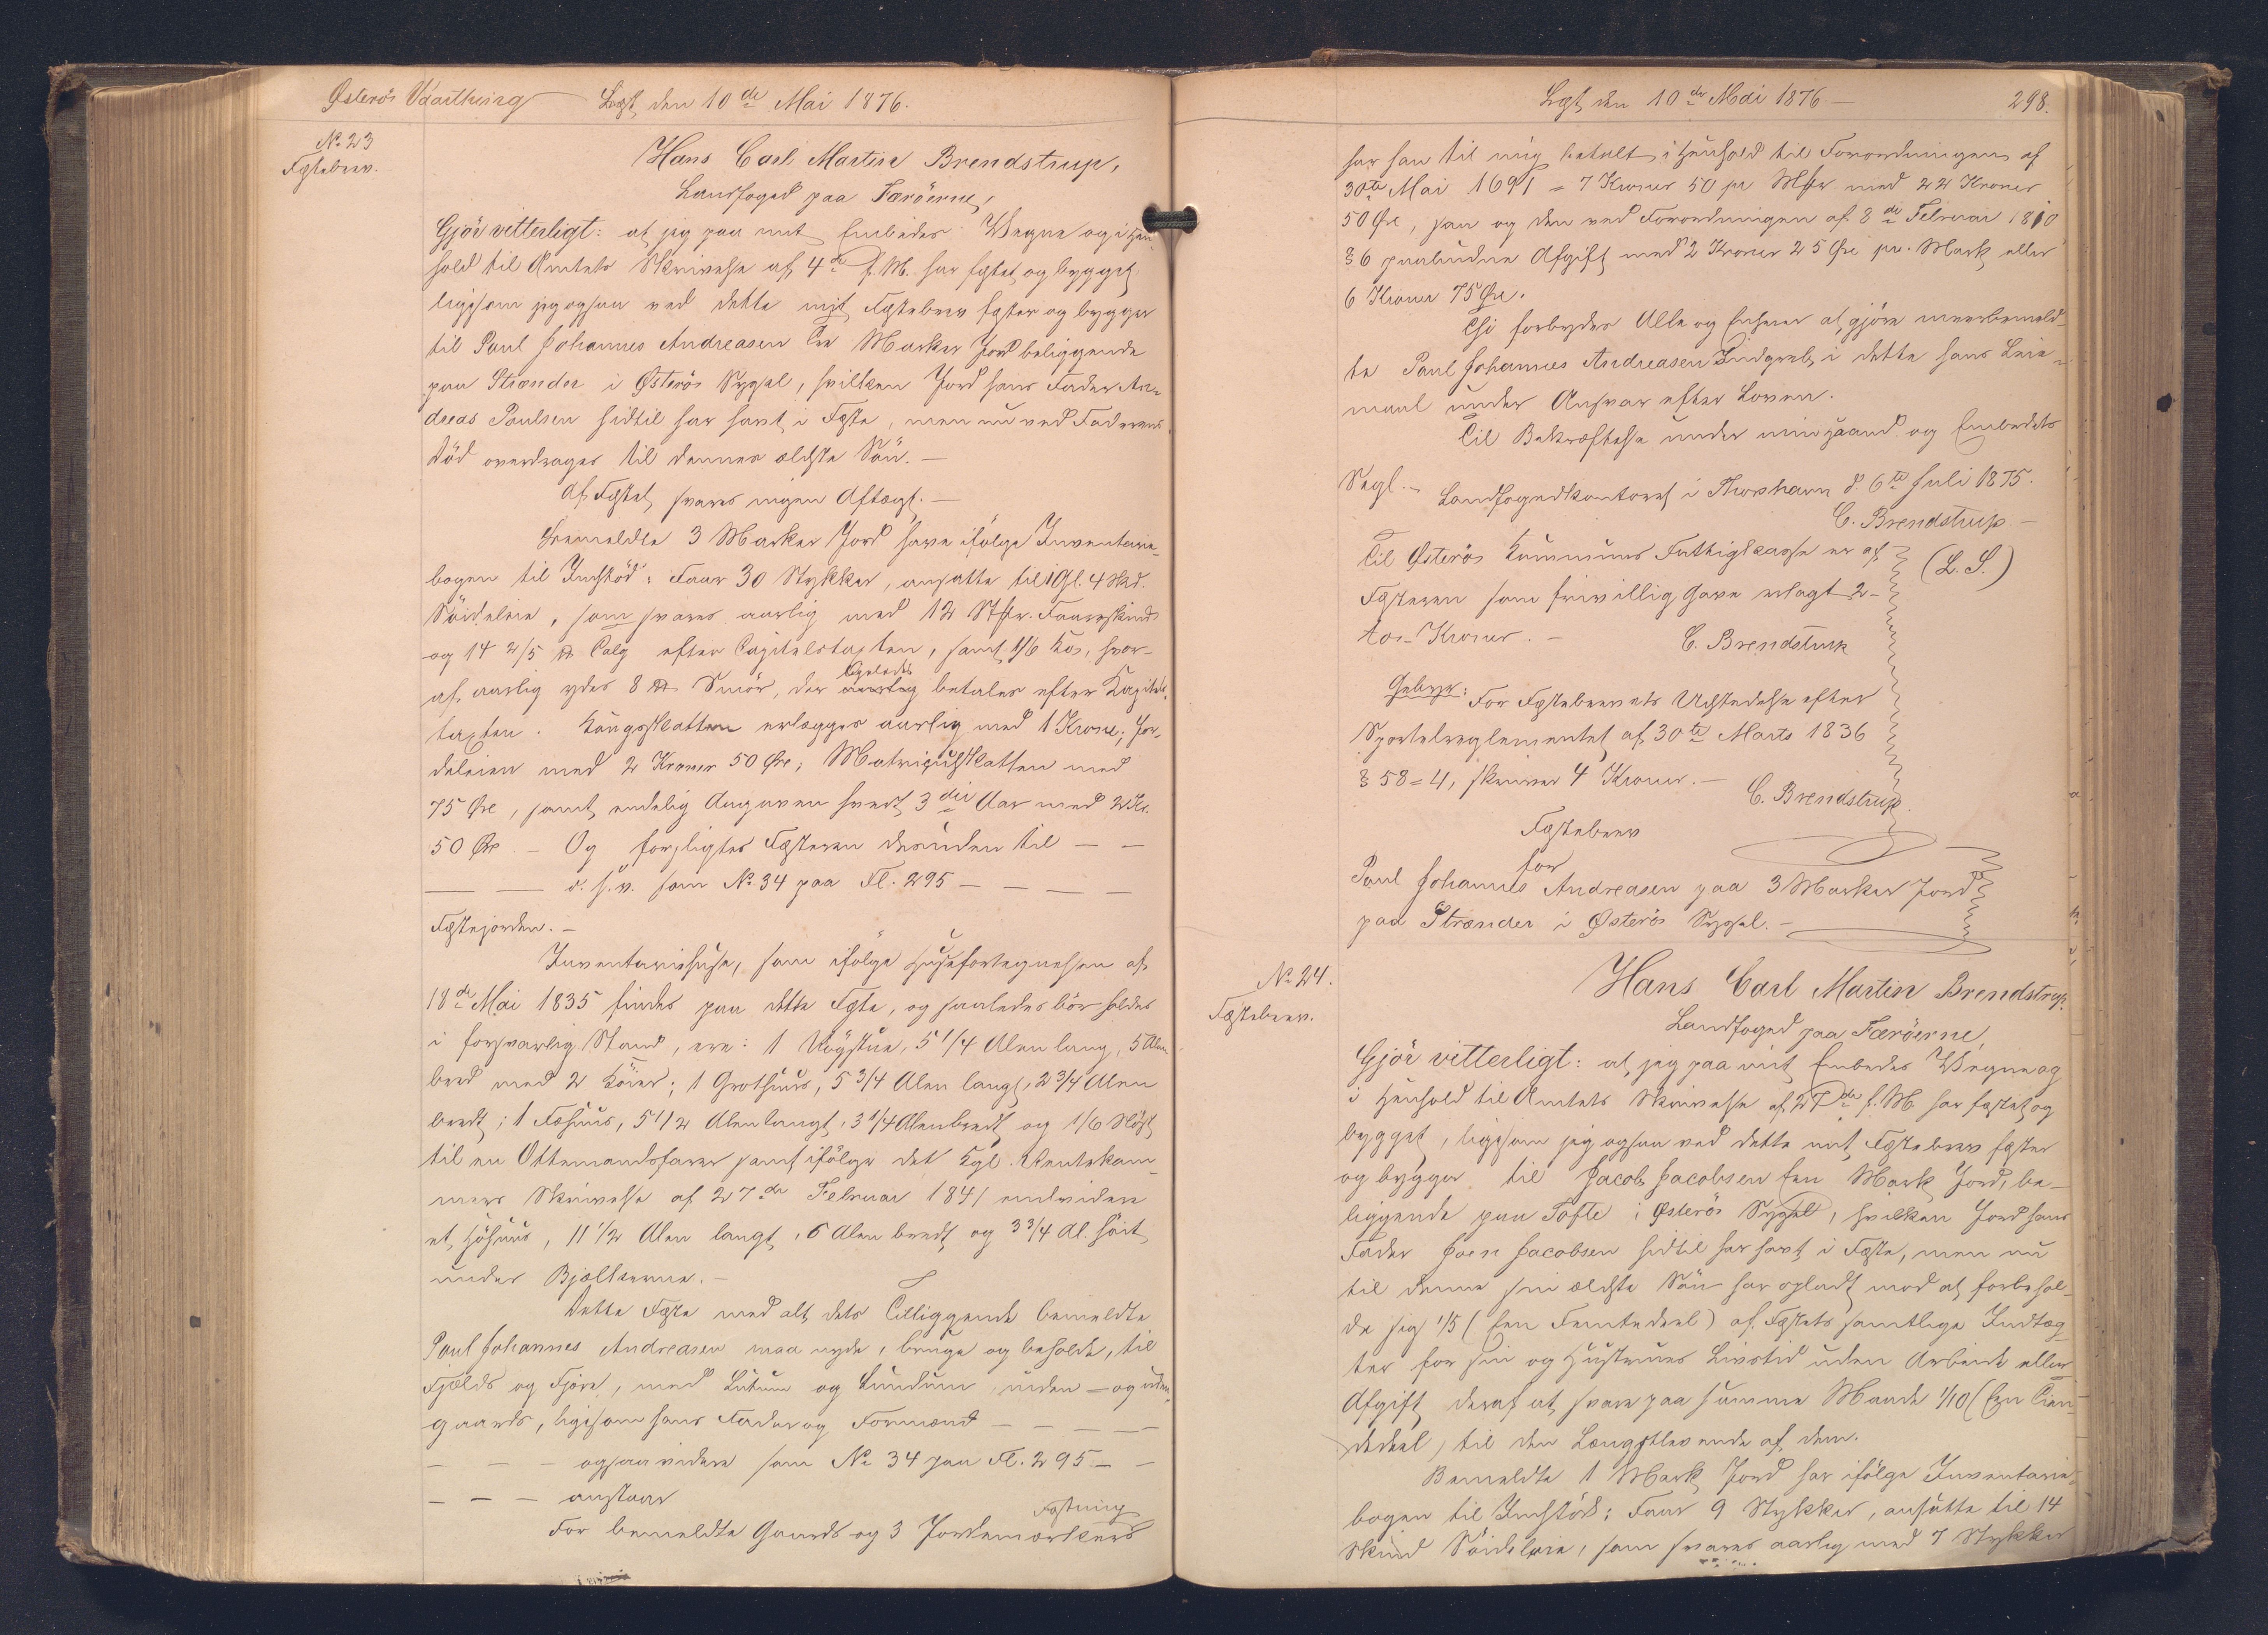 Østerös Vaarthing Læst den 10de Mai 1876.
No 23
Fæstebrev.
Hans Carl Martin Brendstrup,
Landfoged paa Færöerne,
Gjör vitterligt: at jeg paa mit Embedes Vegne og i Hen-
hold til Amtets Skrivelse af 4de f. M. har fæstet og bygget
ligesom jeg ogsaa ved dette mit Fæstebrev fæster og bygger
til Paul Johannes Andreasen Tre Marker Jord beliggende
paa Strænder i Österös Syssel, hvilken Jord hans Fader An-
dreas Paulsen hidtil har havt i Fæste, men nu ved Faderens
Död overdrages til dennes ældste Sön. —
Af Fæstet svares ingen Aftægt. —
Bremeldte 3 Marker Jord have ifölge Inventarie-
bogen til Indstöd: Faar 30 Stykker, ansatte til 1 Gl. 4 Skd.
Söideleie, som svares aarlig med 12 Stkr. Faareskind
og 14 2/5 ℔ Talg efter Capitelstaxten, samt 1/6 Ko, hvor-
af aarlig ydes 8 ℔ Smör, der ligeledes betales efter Kapitels-
taxten. Kongsskatten erlægges aarlig med 1 Krone; Jor-
deleien med 2 Kroner 50 Øre; Matriculskatten med
75 Øre, samt endelig Angaven hvert 3die Aar med 2 Kr.
50 Øre. — Og forpligtes Fæsteren desuden til — —
— — o. s. v. som No 34 paa Fl. 295 — — — —
Fæstejorden. —
Inventariihuse, som ifölge Husefortegnelsen af
18de Mai 1835 findes paa dette Fæste, og saaledes bör holdes
i forsvarlig Stand, ere: 1 Rögstue, 5 1/4 Alen lang, 5 Alen
bred med 2 Köier; 1 Grothuus, 5 3/4 Alen langt, 2 3/4 Alen
bredt; 1 Fæhuus, 5 1/2 Alen langt, 3 1/4 Alen bredt og 1/6 Nöst
til en Ottemandsfarer samt ifölge det Kgl. Rentekam-
mers Skrivelse af 27de Februar 1841 endvidere
et Höhuus, 11 1/2 Alen langt, 6 Alen bredt og 3 3/4 Al. höit
under Bjælkerne. —
Dette Fæste med alt dets Tilliggende bemeldte
Paul Johannes Andreasen maa nyde, bruge og beholde, til
Fjelds og Fjöre, med Lutum og Lundum, inden — og uden
gaards, ligesom hans Fader og Formænd — — — —
— — — ogsaa videre som No 34 paa Fl. 295 — —
— — — anstaar
For bemeldte Gaards og 3 Jordemarkers Fæstning
Læst den 10de Mai 1876 — 298.
har han til mig betalt i Henhold til Forordningen af
30te Mai 1691 = 7 Kroner 50 pr Mkr med 22 Kroner
50 Øre, saa og den ved Forordningen af 8de Februar 1810
§ 6 paabudne Afgift med 2 Kroner 25 Øre pr. Mark eller
6 Kroner 75 Øre.
Thi forbydes Alle og Enhver at gjöre meerbemeld-
te Paul Johannes Andreasen Indgreb i dette hans Leie-
maal under Ansvar efter Loven.
Til Bekræftelse under min Haand og Embedets
Segl. —
Landfogedkontoret i Thorshavn d. 6te Juli 1875.
C. Brendstrup. —
(L. S.)
Til Österös Kommunes Fattigkasse er af
Fæsteren som frivillig Gave erlagt 2 —
to — Kroner. —
C. Brendstrup
Gebyr: For Fæstebrevets Udstedelse efter
Sportelreglementet af 30te Marts 1836
§ 58 = 4, skriver 4 Kroner. —
C. Brendstrup.
Fæstebrev
for
Paul Johannes Andreasen paa 3 Marker Jord
paa Strænder i Østerös Syssel. —
No 24.
Fæstebrev.
Hans Carl Martin Brendstrup,
Landfoged paa Færöerne,
Gjör vitterligt: at jeg paa mit Embedes Vegne og
i Henhold til Amtets Skrivelse af 27de f. M. har fæstet og
bygget, ligesom jeg ogsaa ved dette mit Fæstebrev fæster
og bygger til Jacob Jacobsen Een Mark Jord, be-
liggende paa Tofte i Østerös Syssel, hvilken Jord hans
Fader Joen Jacobsen hidtil har havt i Fæste, men nu
til denne sin ældste Sön har opladt mod at forbehol-
de sig 1/5 (Een Femtedeel) af Fæstets samtlige Indtæg-
ter for sin og Hustrues Livstid uden Arbeide eller
Afgift deraf at svare paa samme Maade 1/10 (Een Tien-
dedeel) til den Længstlevende af dem.
Bemeldte 1 Mark Jord har ifölge Inventarie-
bogen til Indstöd: Faar 9 Stykker, ansatte til 14
Skind Söideleie, som svares aarlig med 7 Stykker